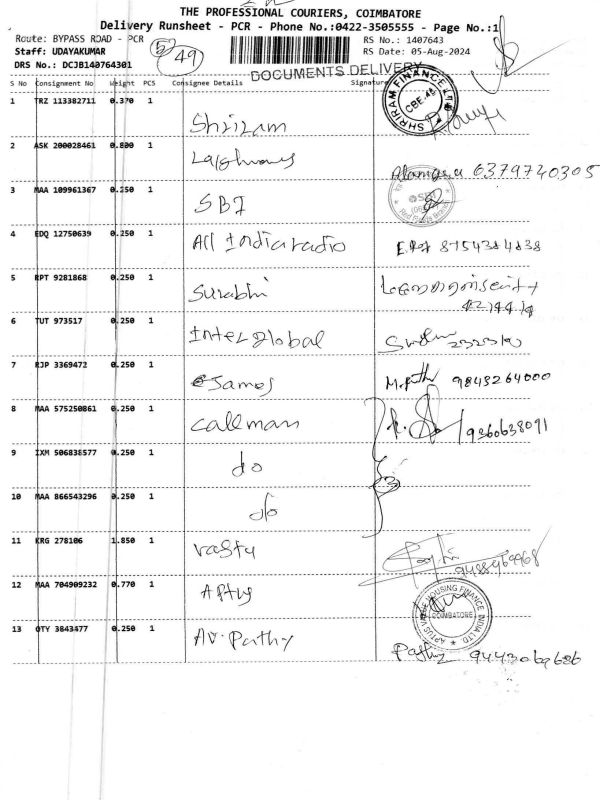 THE PROFESSIONAL COURIERS, COIMBATORE
Delivery Runsheet - PCR - Phone No.:0422-3505555 - Page No.:1
Route: BYPASS ROAD - PCR
RS No.: 1407643
Staff: UDAYAKUMAR
49
RS Date: 05-Aug-2024
DRS No.: DCJB140764301
DOCUMENTS DELIVERY
S No Consignment No Weight PCS Consignee Details Signature
1 TRZ 113382711 0.370 1 Shriram
SHRIRAM FINANCE CBE-45
2 ASK 200028461 0.800 1
6379740305
3 MAA 109961367 0.250 1 SBI
SBI
4 EDQ 12750639 0.250 1 All India radio 8754384838
5 RPT 9281868 0.250 1 Surabhi
6 TUT 973517 0.250 1 Interglobal
7 RJP 3369472 0.250 1 James 9843264000
8 MAA 575250861 0.250 1 Callman 9360638091
9 IXM 506838577 0.250 1 do
10 MAA 866543296 0.250 1 do
11 KRG 278106 1.850 1 Vastu 9488969968
12 MAA 704909232 0.770 1 Aptus
APTUS VALUE HOUSING FINANCE INDIA LTD. COIMBATORE
13 OTY 3843477 0.250 1 Av. Pathy
Pathy 9443069686